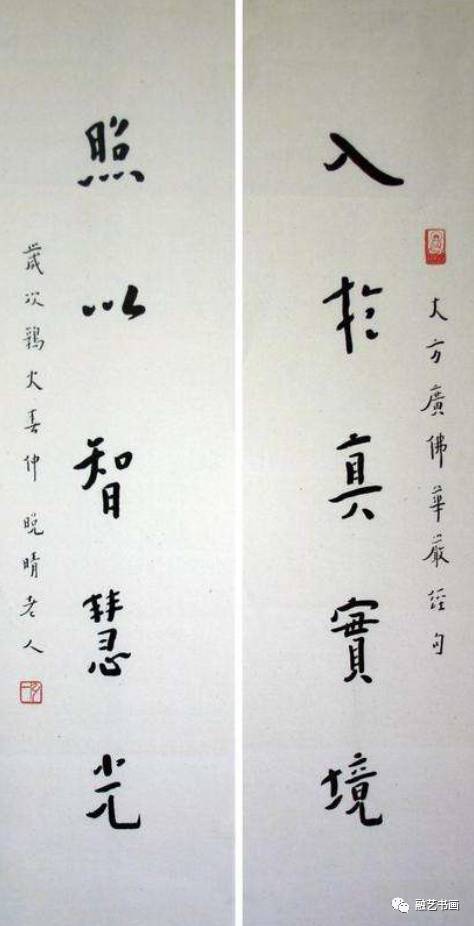 大方廣佛華嚴經句
入於真實境
照以智慧光
歲次鶉火春仲 晚晴老人
融艺书画